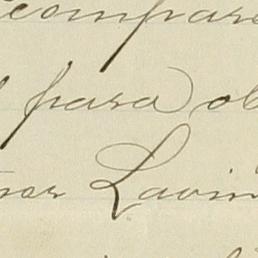 compare
para ob
Lavin